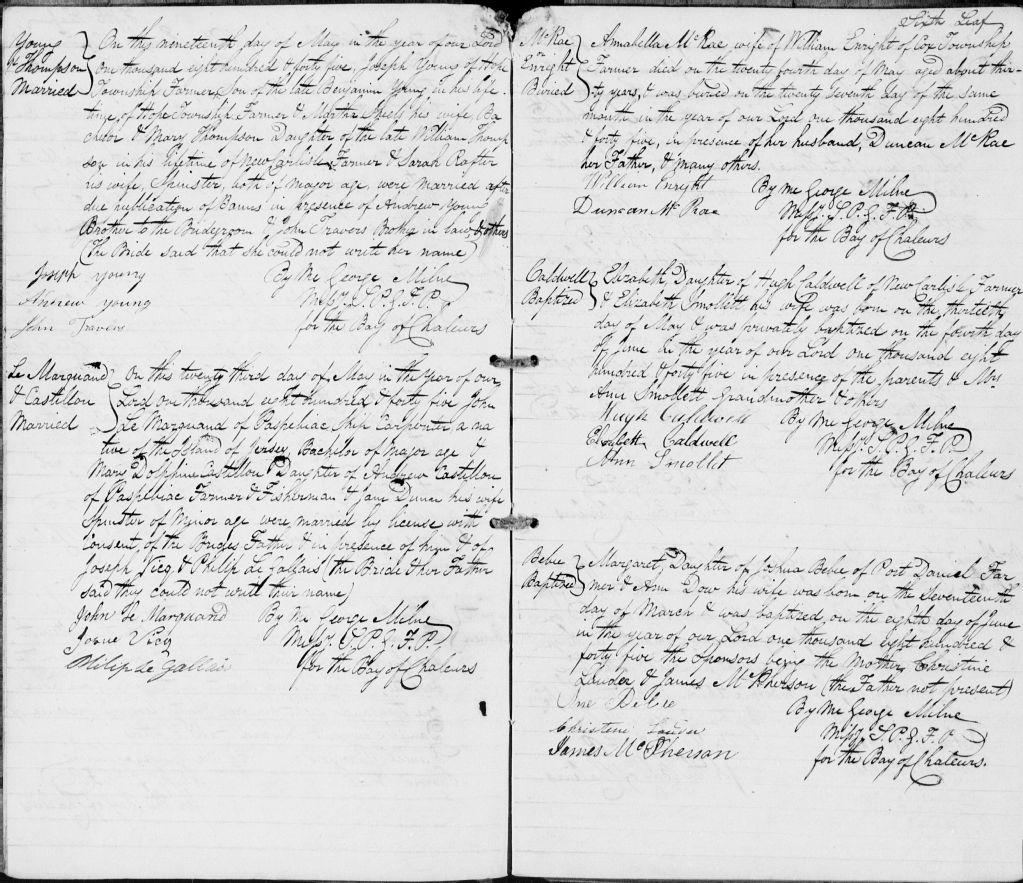 Young
& Thompson
Married
On this nineteenth day of May in the year of our Lord
one thousand eight hundred & forty five, Joseph Young of Hope
Township Farmer, Son of the late Benjamin Young in his life
time, of Hope Township, Farmer & Martha Sheels his wife, Ba
chelor & Mary Thompson Daughter of the late William Thomp
son in his lifetime of New Carlisle Farmer & Sarah Rafter
his wife, Spinster, both of major age, were married after
due publication of Banns in presence of Andrew Young
Brother to the Bridegroom & John Travers Brother in law & others
(The Bride said that she could not write her name)
Joseph young
Andrew young
John Travers
By Me George Milne
Missy. S. P. G. F. P.
for the Bay of Chaleurs
Le Marquand
& Castillon
Married
On this twenty third day of May in the Year of our
Lord one thousand eight hundred & forty five John
Le Marquand of Paspebiac Ship Carpenter a na
tive of the Island of Jersey, Bachelor of major age &
Mary Dolphine Castillon Daughter of Andrew Castillon
of Paspebiac Farmer & Fisherman & Jane his wife
Spinster of Minor age were married by license with
consent, of the Brides Father & in presence of him & of
Joseph Vicq & Philip Le Gallais (the Bride & her Father
said they could not write their name)
John Le Marquand
Josue Vicq
Philip Le Gallais
By Me George Milne
Missy. S. P. G. F. P.
for the Bay of Chaleurs
Sixth Leaf
McRae
or
Enright
Buried
Annabella McRae wife of William Enright of Cox Township
Farmer died on the twenty fourth day of May aged about thir-
ty years, & was buried on the twenty seventh day of the same
month in the year of our Lord one thousand eight hundred
& forty five, in presence of her husband, Duncan McRae
her Father, & many others.
William Enright
Duncan McRae
By me George Milne
Missy. S. P. G. F. P.
for the Bay of Chaleurs
Caldwell
Baptized
Elizabeth, Daughter of Hugh Caldwell of New Carlisle Farmer
& Elizabeth Smollett his wife was born on the thirteenth
day of May & was privately baptized on the fourth day
of June in the year of our Lord one thousand eight
hundred & forty five in presence of the parents & Mrs
Ann Smollett Grandmother & others
Hugh Caldwell
Elizabeth Caldwell
Ann Smollet
By Me George Milne
Missy. S. P. G. F. P.
for the Bay of Chaleurs
Bebee
Baptized
Margaret, Daughter of Joshua Bebee of Port Daniel Far
mer & Ann Dow his wife was born on the Seventeenth
day of March & was baptized, on the eighth day of June
in the year of our Lord one thousand eight hundred &
forty five the Sponsors being the Mother, Christine
Lauder & James McPherson (the Father not present)
Christeni Lauder
James McPherson
By Me George Milne
Missy. S. P. G. F. P.
for the Bay of Chaleurs.